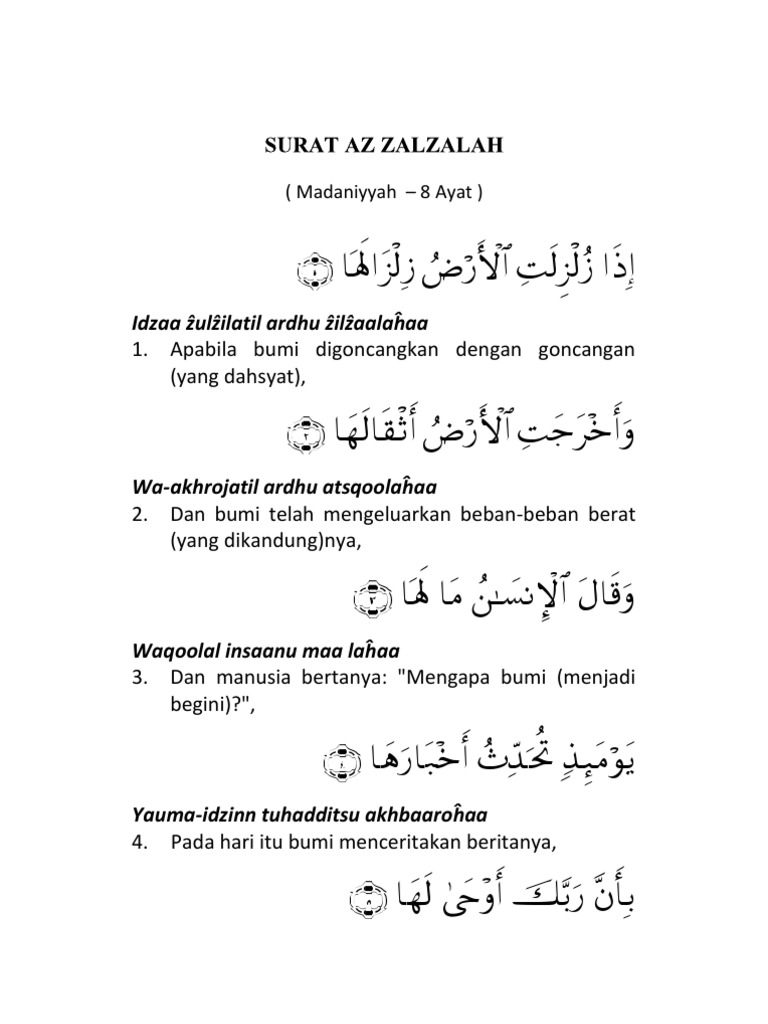 SURAT AZ ZALZALAH
( Madaniyyah – 8 Ayat )
إِذَا زُلْزِلَتِ ٱلْأَرْضُ زِلْزَالَهَا ١
Idzaa ẑulẑilatil ardhu ẑilẑaalaĥaa
1. Apabila bumi digoncangkan dengan goncangan
(yang dahsyat),
وَأَخْرَجَتِ ٱلْأَرْضُ أَثْقَالَهَا ٢
Wa-akhrojatil ardhu atsqoolaĥaa
2. Dan bumi telah mengeluarkan beban-beban berat
(yang dikandung)nya,
وَقَالَ ٱلْإِنسَـٰنُ مَا لَهَا ٣
Waqoolal insaanu maa laĥaa
3. Dan manusia bertanya: "Mengapa bumi (menjadi
begini)?",
يَوْمَئِذٍ تُحَدِّثُ أَخْبَارَهَا ٤
Yauma-idzinn tuhadditsu akhbaaroĥaa
4. Pada hari itu bumi menceritakan beritanya,
بِأَنَّ رَبَّكَ أَوْحَىٰ لَهَا ٥